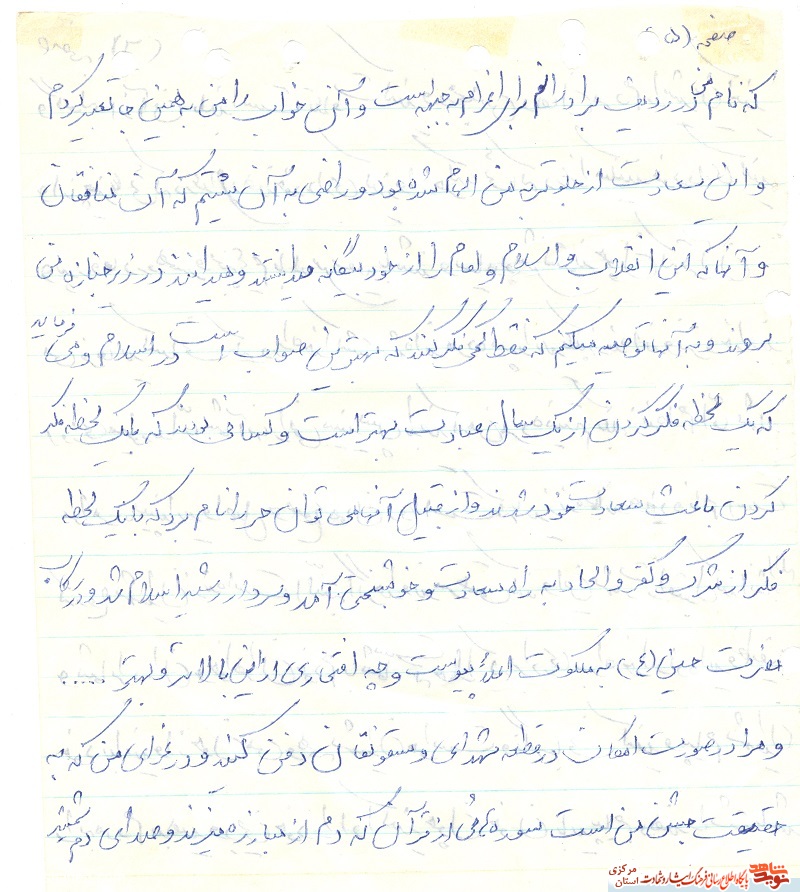 صفحه (۵)
که نام من در ردیف برادرانم برای اعزام به جبهه است و آن خواب را من به همین جا تعبیر کردم
و این سعادت از جلوتر به من الهام شده بود و راضی به آن نیستم که آن منافقان
و آنها که این انقلاب و اسلام و امام را از خود بیگانه میدانستند و میدانند در زیر جنازه من
بروند و به آنها توصیه میکنم که فقط کمی فکر کنند که بهترین صواب است در اسلام و می فرماید
که یک لحظه فکر کردن از یک سال عبادت بهتر است و کسانی بودند که با یک لحظه فکر
کردن باعث سعادت خود شدند و از قبیل آنها می توان حر را نام برد که با یک لحظه
فکر از شرک و کفر و الحاد به راه سعادت و خوشبختی آمد و سردار رشید اسلام شد و در رکاب
حضرت حسین (ع) به ملکوت اعلاء پیوست و چه افتخاری از این بالاتر و بهتر .....
و مرا در صورت امکان در قطعه شهدای دفن کنند و در عزای من که به
حقیقت جشن من است سوره هائی از قرآن که دم از مبارزه میزند و صدای دم شمشیر
نوید شاهد پایگاه اطلاع رسانی فرهنگ ایثار و شهادت استان مرکزی